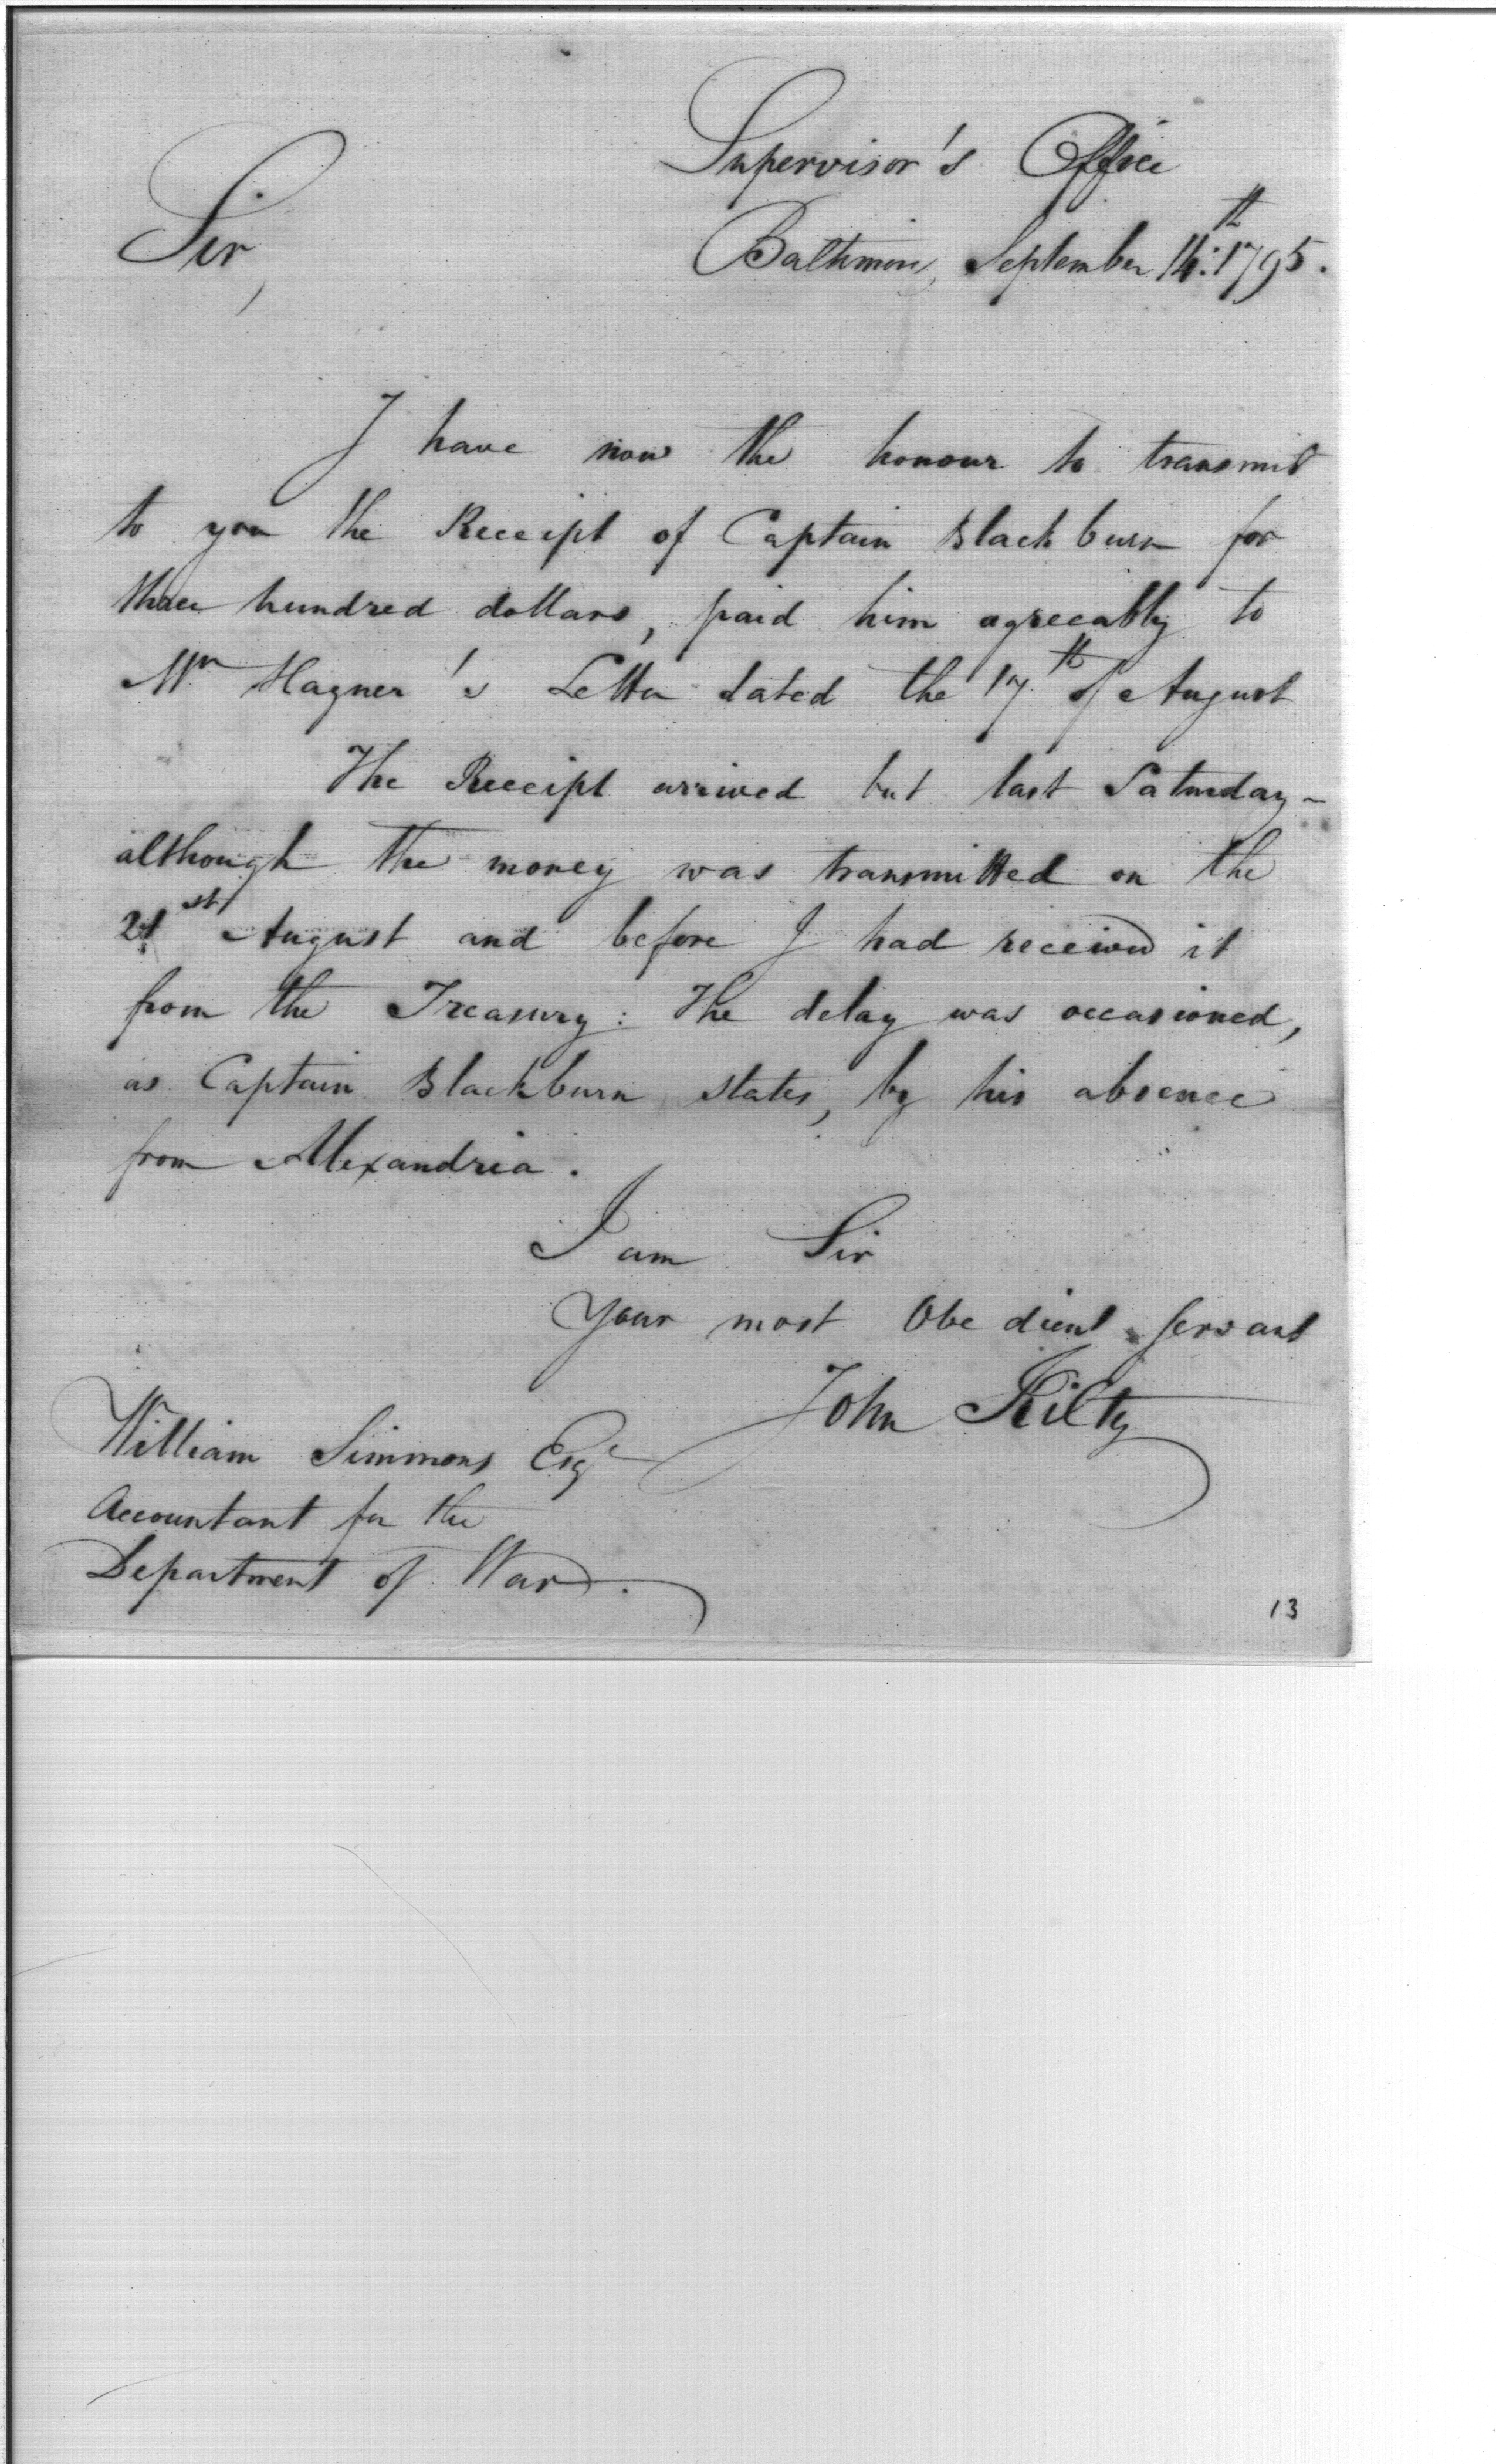 Supervisor's Office
Sir,
Baltimore, September 14th 1795.
I have now the honour to transmit
to you the Receipt of Captain Blackburn for
three hundred dollars, paid him agreeably to
Mr Hagner's Letter dated the 17th of August
The Receipt arrived but last Saturday -
although the money was transmitted on the
21st August and before I had received it
from the Treasury: The delay was occasioned,
as Captain Blackburn states, by his absence
from Alexandria.
I am Sir
Your most Obedient servant
John Kilty
William Simmons Esqr
Accountant for the
Department of War.
13